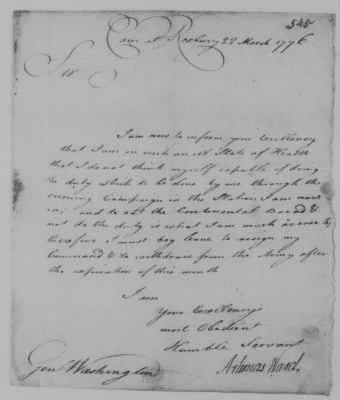 545
Camp at Roxbury 22 March 1776
Sir
I am now to inform your Excellency
that I am in such an ill State of Health
that I do not think myself capable of doing
the duty which to be done by me through the
ensuing Campaign in the Station, I am now
in; and to eat the Continental Bread &
not do the duty is what I am much averse to,
therefore I must beg leave to resign my
Command & to withdraw from the Army after
the expiration of this month
I am
Your Excellency's
most Obedient
Humble Servant
Artemas Ward
Genl Washington